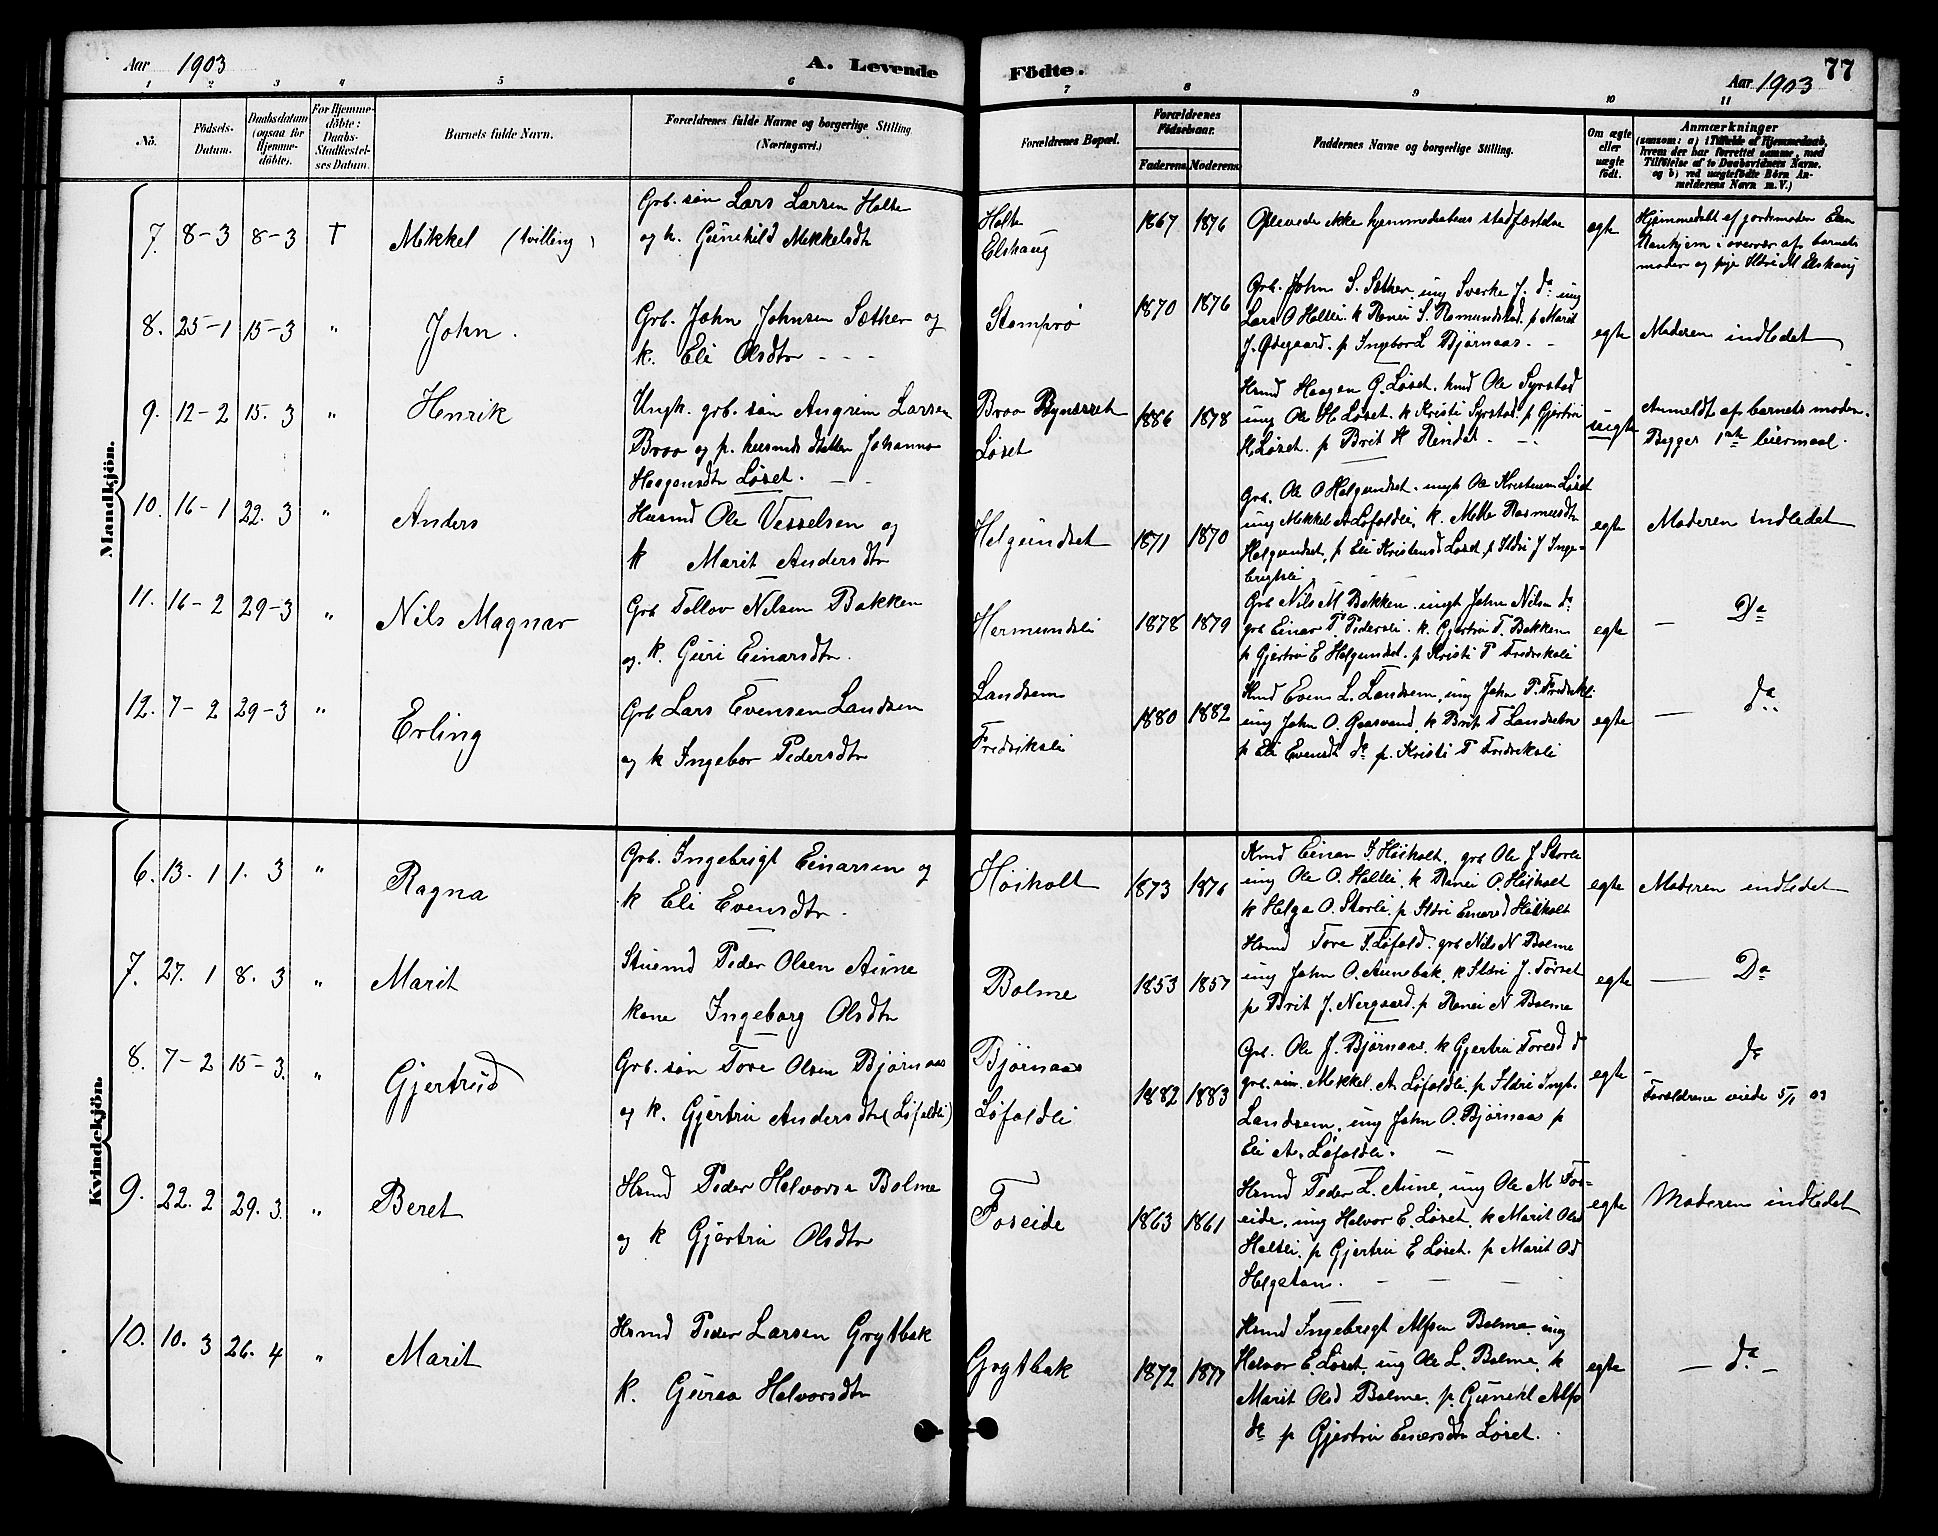 Aar 1903
A. Levende
Fødte.
Aar 1903
77
1 2 3 4 5 6 7 8 9 10 11
No.
Födsels-
Datum.
Daabsdatum
(ogsaa for
Hjemme-
döbte).
For Hjemme-
döbte:
Daabs-
Stadfæstel-
ses Datum.
Barnets fulde Navn.
Forældrenes fulde Navne og borgerlige Stilling
(Næringsvei.)
Forældrenes Bopæl.
Forældrenes
Födselsaar.
Faderens. Moderens.
Faddernes Navne og borgerlige Stilling.
Om ægte
eller
uægte
født.
Anmærkninger
(saasom: a) i Tilfælde af Hjemmedaab,
hvem der har forrettet samme, med
Tilföielse af to Daabsvidners Navne.
og b) ved uægtefödte Börn An-
melderens Navn m. V.)
Mandkjön.
7. 8-3 8-3 † Mikkel (tvilling)
Grb. søn Lars Larsen Holte
og k. Gunehild Mikkelsdtr
Holte
Elshaug
1867 1876
Oplevede ikke hjemmedaabens stadfæstelse
egte
Hjemmedøbt af jordmoder
i overvær af barnets
moder og pige Ildri M Elshaug
8. 25-1 15-3 " John.
Grb. John Johnsen Sæther og
k. Eli Olsdtr - - -
Stomprø
1870 1876
Grb. John S. Sæther. ung Sverke J. do ung
Lars O Holtli. k Ranei S. Romundstad. p Marit
J. Ødegaard. p Ingebor L Bjørnaas. -
egte
Moderen indledet
9. 12-2 15. 3 " Henrik
Ungk. grb. søn Angrim Larsen
Broo og p. husmds datter Johanna
Haagensdtr Løset. - -
Broo Bynesset
Løset
1886 1878
Hsmd Haagen G. Løset. hmd Ole Syrstad
ung Ole H. Løset. k Kristi Syrstad. p Gjertru
H. Løset. p Brit H Rindal - -
uegte
Anmeldt af barnets moder.
Begges 1ste leiermaal.
10. 16-1 22. 3 " Anders
Husmd Ole Vesselsen og
k Marit Andersdtr
Helgundset
1871 1870
Grb. Ole O Helgundset. ungk Ole Kristensen Løset
ung Mekkel A Løfoldli, k. Mette Rasmusdtr
Helgundset, p Eli Kristensd Løset, p Ildri J Inge-
brigtsli
egte
Moderen indledet
11. 16-2 29-3 " Nils Magnar
Grb Tollov Nilsen Bakken
og k. Guri Einarsdtr.
Hermundsli
1878 1879
Grb Nils M. Bakken. ungk John Nilsen do
grb Einar P. Pedersli. k. Gjertru T. Bakken
p Gjertru E Helgundset. p Kristi P Fredriksli
egte
- Do
12. 7-2 29-3 " Erling
Grb Lars Evensen Landsem
og k Ingebor Pedersdtr
Landsem
Fredriksli
1880 1882
Hsmd Even L. Landsem, ung John P. Fredriksli
ung John O. Gaasvand, k Brit T Landsem
p Eli Evensdt do p. Kristi P Fredriksli
egte
- do
Kvindekjön.
6. 13. 1 1. 3 " Ragna
Grb. Ingebrigt Einarsen og
k Eli Evensdtr.
Høiholt
1873 1876
Hmd Einar I. Høiholt. grb Ole J Storli
ung Ole O. Holtli. k Ranei O. Høiholt
k Helga O. Storli. p Ildri Einarsd Høiholt
egte
Moderen indledet
7. 27. 1 8. 3 " Marit
Stuemd Peder Olsen Aune
kone Ingeborg Olsdtr
Bolme
1853 1857
Hsmd Tore I. Løfold. grb Nils N Bolme
ung John O. Aunebak. k Ildri J. Tørset
pe Brit J. Nergaard. p Ranei N Bolme
egte
- Do
8. 7-2 15-3. " Gjertrud
Grb. søn Tore Olsen Bjørnaas
og k. Gjertru Andersdtr (Løfaldli)
Bjørnaas
Løfoldli
1882 1883
Grb. Ole J. Bjørnaas. k Gjertru Toresd do
grb. søn. Mekkel. A. Løfoldli. p Ildri Ingb.
Landsem. ung John O. Bjørnaas p
Eli A. Løfoldli. -
egte
- do
Forældrene viede 5/1 03
9. 22. 2 29. 3. " Beret
Hsmd Peder Halvorsn Bolme
og k Gjertru Olsdtr
Foseide
1863 1861
Hsmd Peder L. Aune, ung Ole M Fos-
eide, ung Halvor E. Løset. k Marit Olsd
Holtli. p Gjertru E Løset. p Marit Od
Helgetun. - - -
egte
Moderen indledet
10. 10. 3 26. 4 " Marit
Hsmd Peder Larsen Grytbak
k. Guraa Halvorsdtr
Grytbak
1872 1877
Hsmd Ingebrigt Alfsen Bolme. ung
Halvor E. Løset, ung Ole L. Bolme, k
Marit Olsd Bolme. p. Gunehl Alfs
do p Gjertru Einarsdtr Løset.
egte
- do -